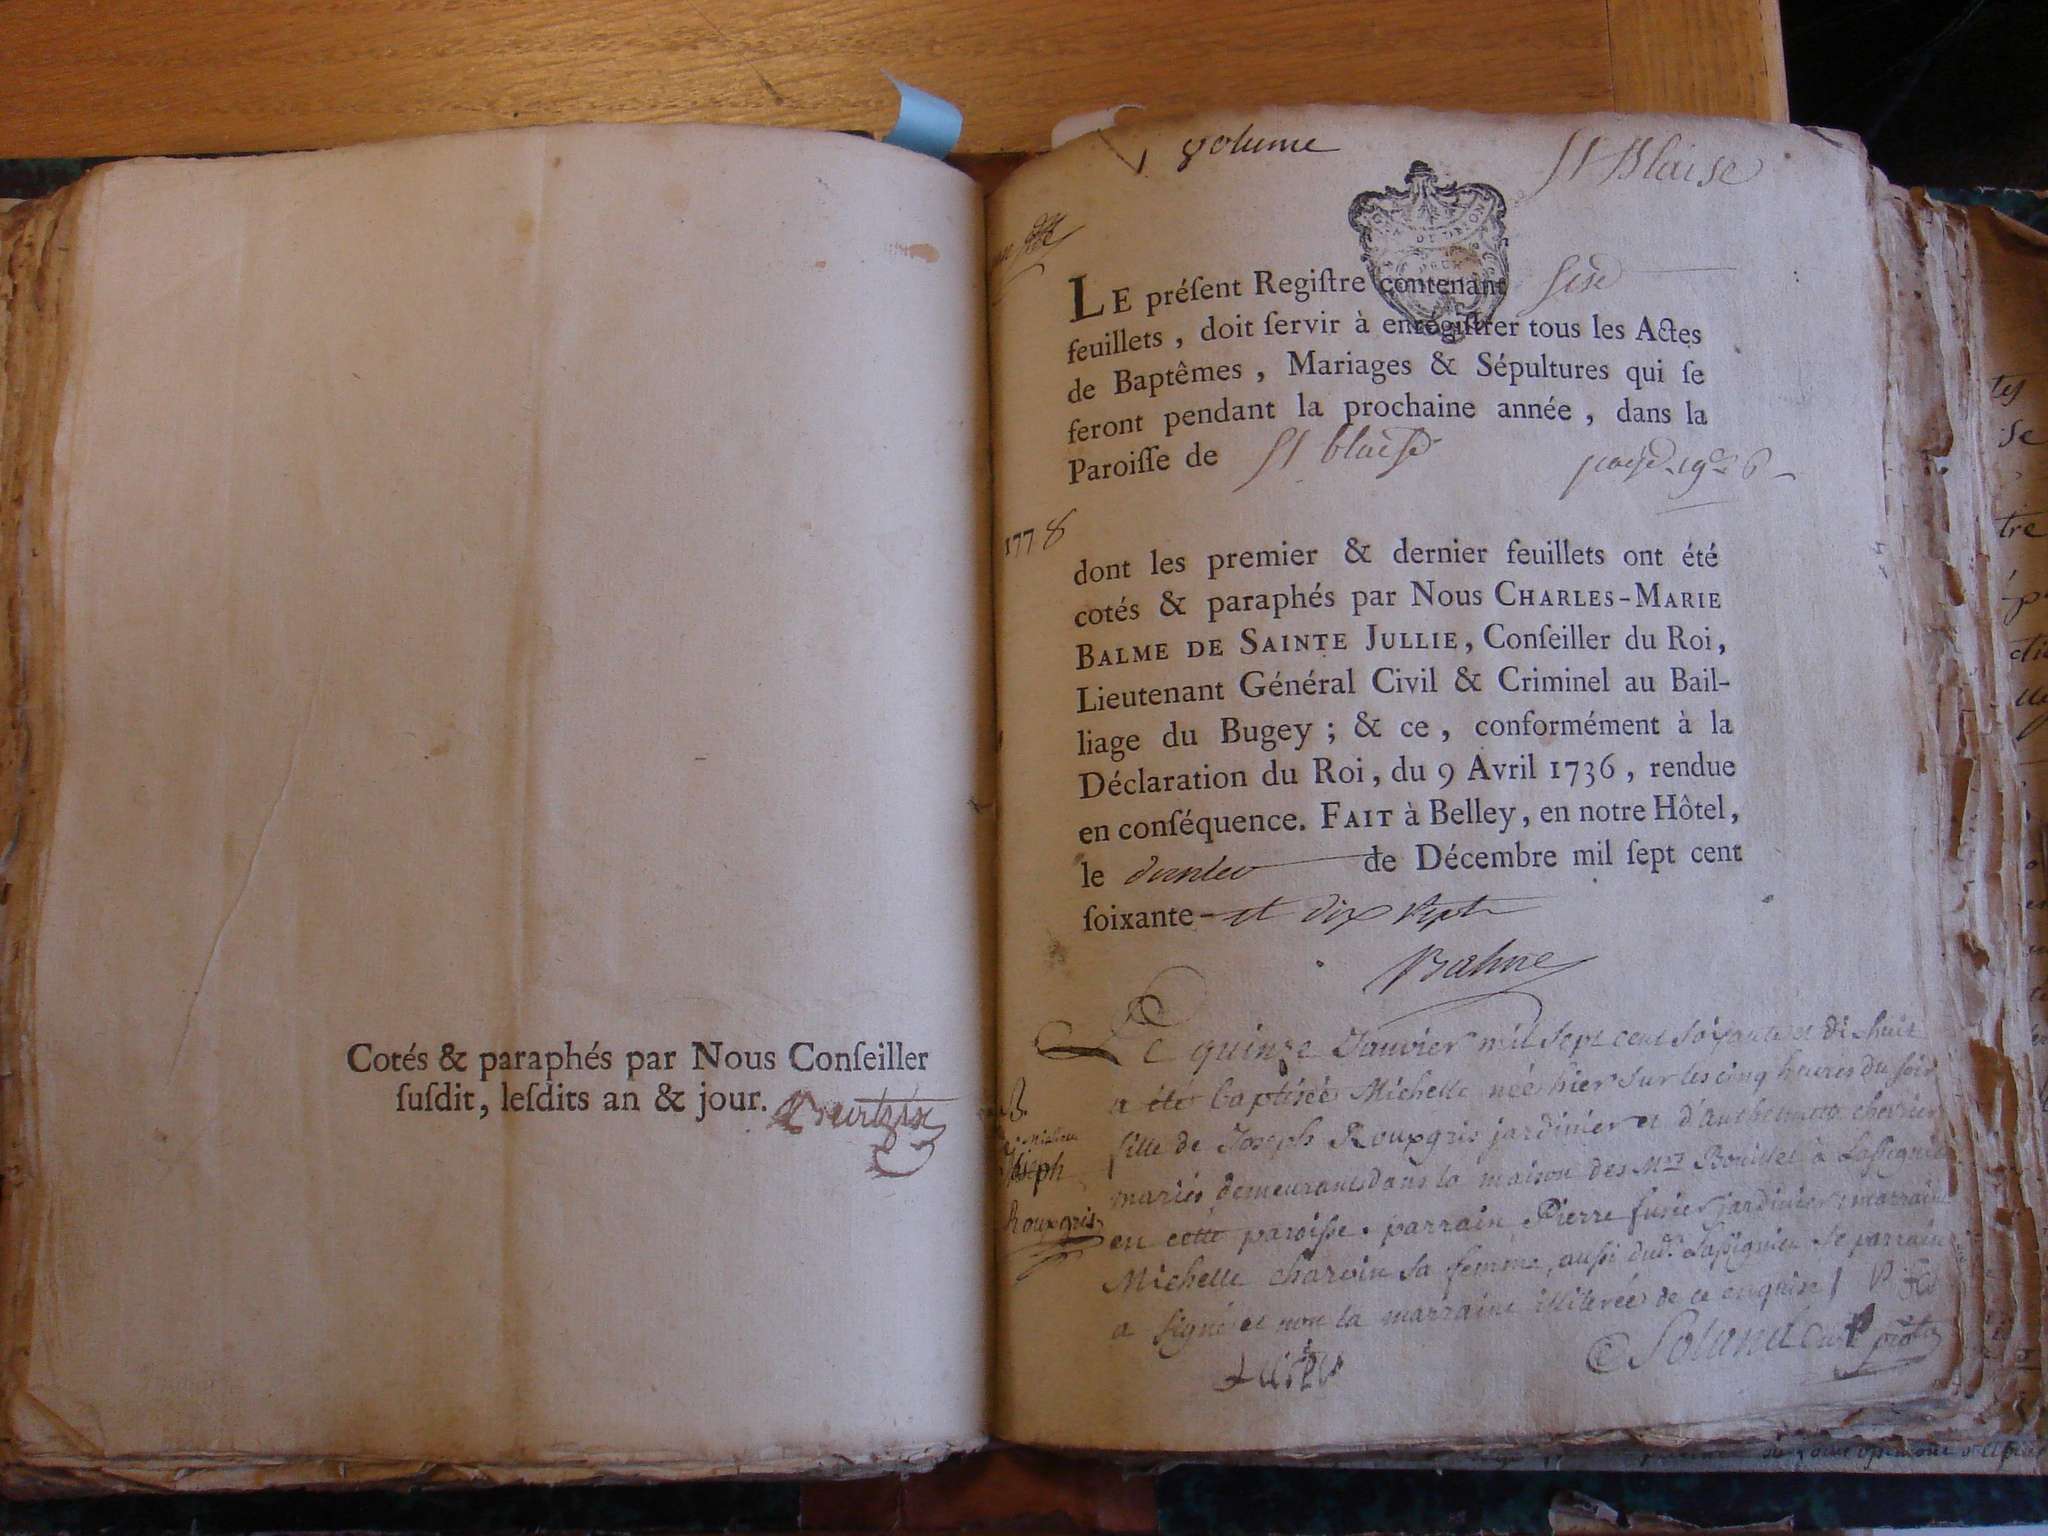 Cotés & paraphés par Nous Conſeiller
ſuſdit, leſdits an & jour.
volume
St Blaise
LE préſent Regiſtre contenant
feuillets, doit ſervir à enrégiſtrer tous les Actes
de Baptêmes, Mariages & Sépultures qui ſe
feront pendant la prochaine année, dans la
Paroiſſe de St blaise
1778
dont les premier & dernier feuillets ont été
cotés & paraphés par Nous CHARLES-MARIE
BALME DE SAINTE JULLIE, Conſeiller du Roi,
Lieutenant Général Civil & Criminel au Bail-
liage du Bugey ; & ce, conformément à la
Déclaration du Roi, du 9 Avril 1736, rendue
en conſéquence. FAIT à Belley, en notre Hôtel,
le de Décembre mil ſept cent
ſoixante- et dix sept
Balme
Le quinze Janvier mil sept cent soixante et dix huit
a été baptisée Michelle née hier sur les cinq heures du soir
fille de Joseph Rouxgris jardinier et d'anthelmette chevrier
mariés demeurant dans la maison des Mrs Bouillet à
en cette paroisse. parrain Pierre jardinier, marraine
Michelle charvin sa femme, aussi dud. le parrain
a signé et non la marraine illiterée de ce enquise
Joseph
Rouxgris